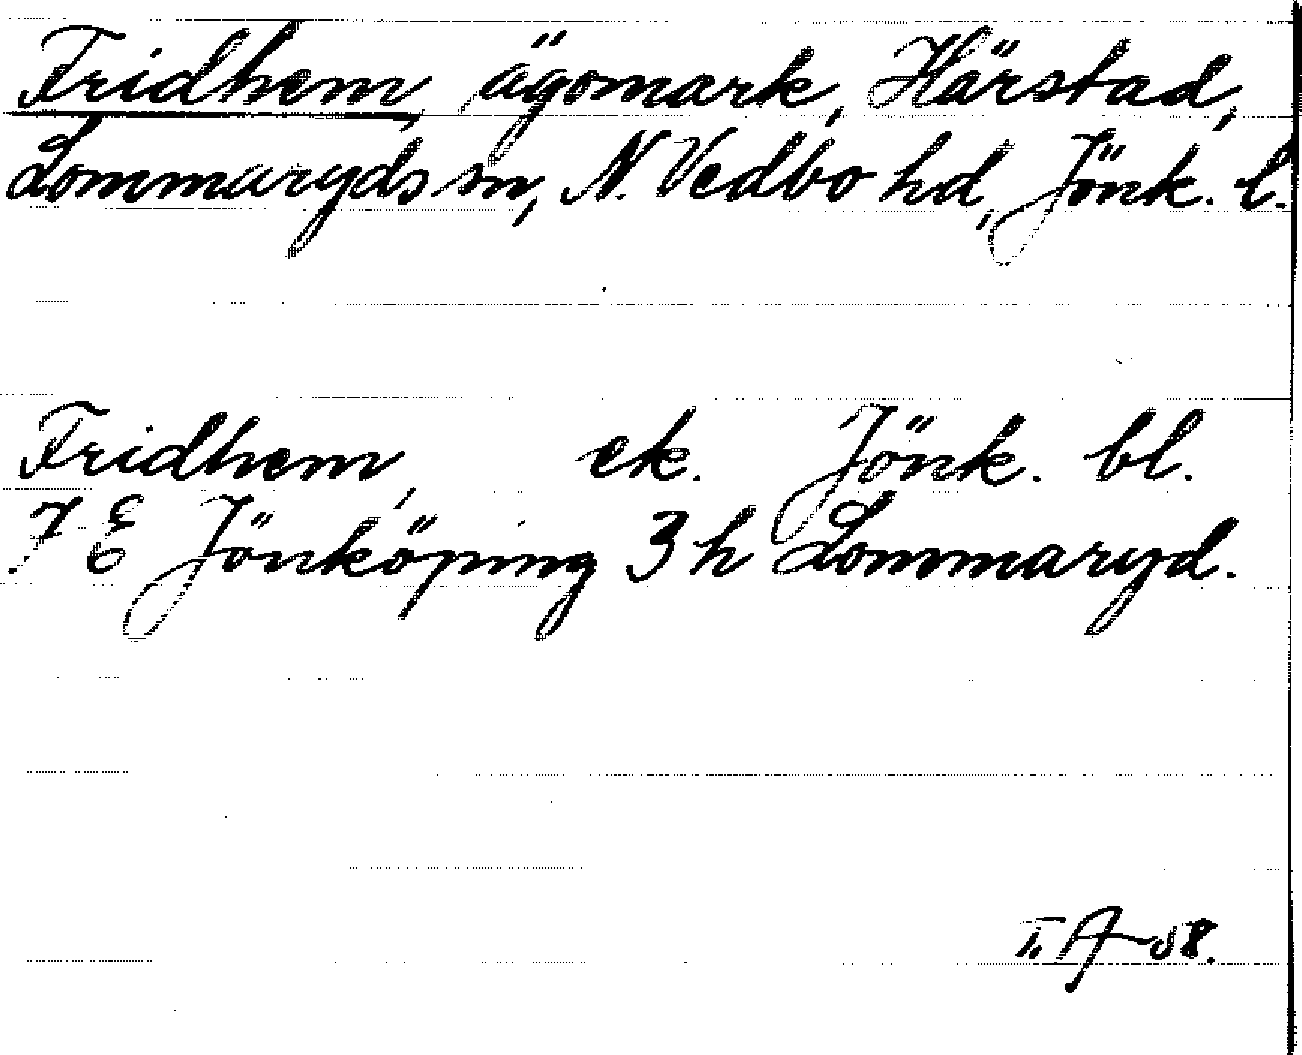 Fridhem, ägomark, Hårstad,
Lommaryds sn, N. Vedbo hd, Jönk. l.
Fridhem, ek. Jönk. bl.
7 E Jönköping 3 h Lommaryd.